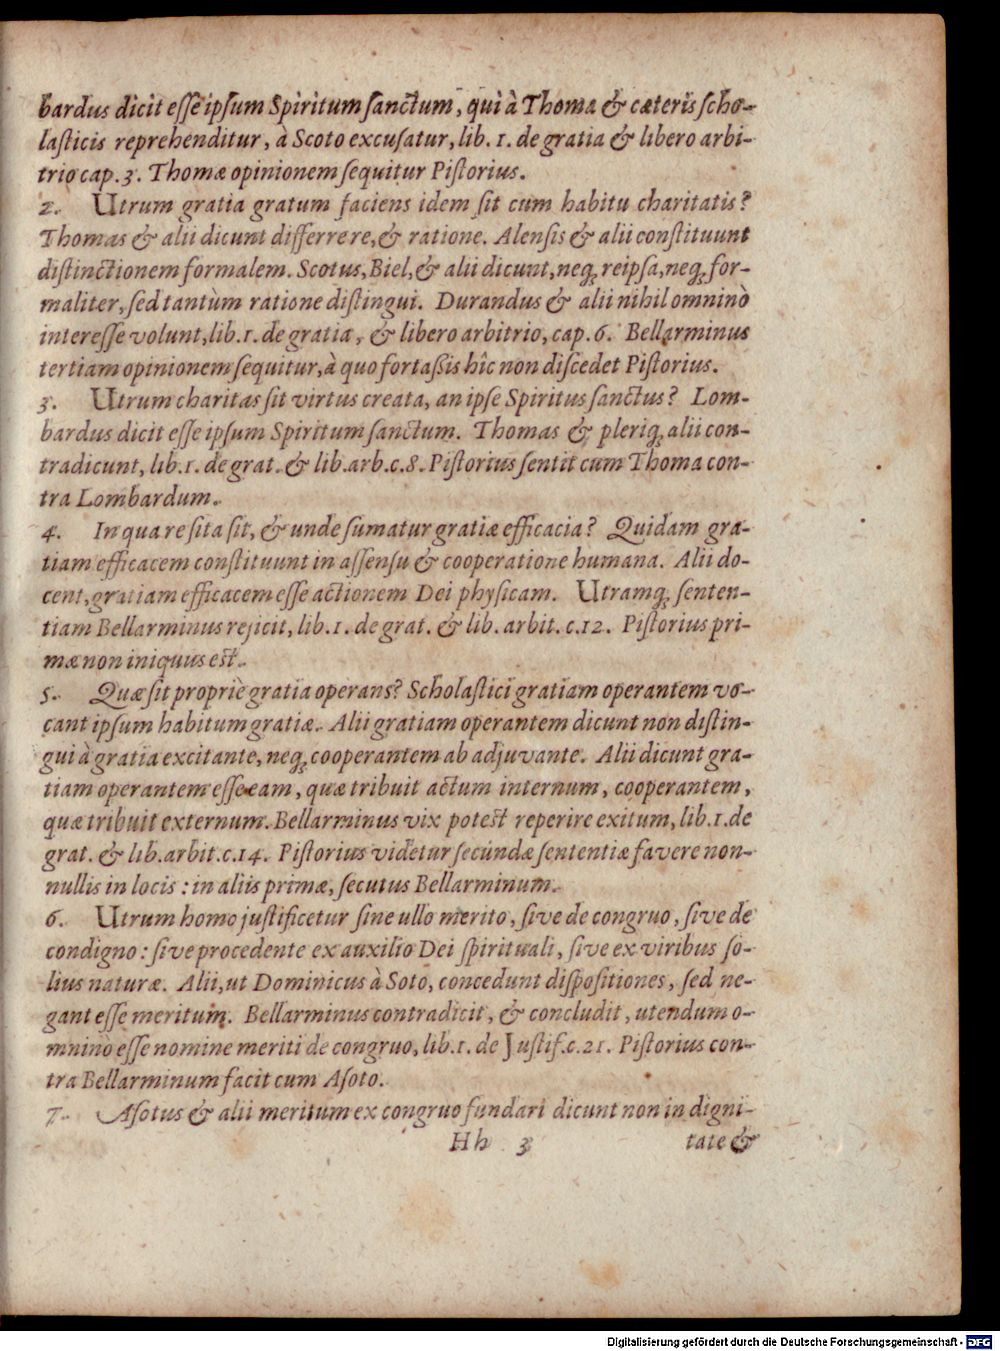 bardus dicit esse ipsum Spiritum sanctum, qui à Thoma & cæteris scho-
lasticis reprehenditur, à Scoto excusatur, lib. 1. de gratia & libero arbi-
trio cap. 3. Thomæ opinionem sequitur Pistorius.
2. Utrum gratia gratum faciens idem sit cum habitu charitatis?
Thomas & alii dicunt differre re, & ratione. Alensis & alii constituunt
distinctionem formalem. Scotus, Biel, & alii dicunt, neq; reipsa, neq; for-
maliter, sed tantùm ratione distingui. Durandus & alii nihil omninò
interesse volunt, lib. 1. de gratia, & libero arbitrio, cap. 6. Bellarminus
tertiam opinionem sequitur, à quo fortassis hîc non discedet Pistorius.
3. Utrum charitas sit virtus creata, an ipse Spiritus sanctus? Lom-
bardus dicit esse ipsum Spiritum sanctum. Thomas & pleriq; alii con-
tradicunt, lib. 1. de grat. & lib. arb. c. 8. Pistorius sentit cum Thoma con-
tra Lombardum.
4. In qua re sita sit, & unde sumatur gratiæ efficacia? Quidam gra-
tiam efficacem constituunt in assensu & cooperatione humana. Alii do-
cent, gratiam efficacem esse actionem Dei physicam. Utramq; senten-
tiam Bellarminus rejicit, lib. 1. de grat. & lib. arbit. c. 12. Pistorius pri-
mæ non iniquus est.
5. Quæ sit propriè gratia operans? Scholastici gratiam operantem vo-
cant ipsum habitum gratiæ. Alii gratiam operantem dicunt non distin-
gui à gratia excitante, neq; cooperantem ab adjuvante. Alii dicunt gra-
tiam operantem esse eam, quæ tribuit actum internum, cooperantem,
quæ tribuit externum. Bellarminus vix potest reperire exitum, lib. 1. de
grat. & lib. arbit. c. 14. Pistorius videtur secundæ sententiæ favere non-
nullis in locis: in aliis primæ, secutus Bellarminum.
6. Utrum homo justificetur sine ullo merito, sive de congruo, sive de
condigno: sive procedente ex auxilio Dei spirituali, sive ex viribus so-
lius naturæ. Alii, ut Dominicus à Soto, concedunt dispositiones, sed ne-
gant esse meritum. Bellarminus contradicit, & concludit, utendum o-
mninò esse nomine meriti de congruo, lib. 1. de Justif. c. 21. Pistorius con-
tra Bellarminum facit cum Asoto.
7. Asotus & alii meritum ex congruo fundari dicunt non in digni-
Hh 3 tate &
Digitalisierung gefördert durch die Deutsche Forschungsgemeinschaft - DFG